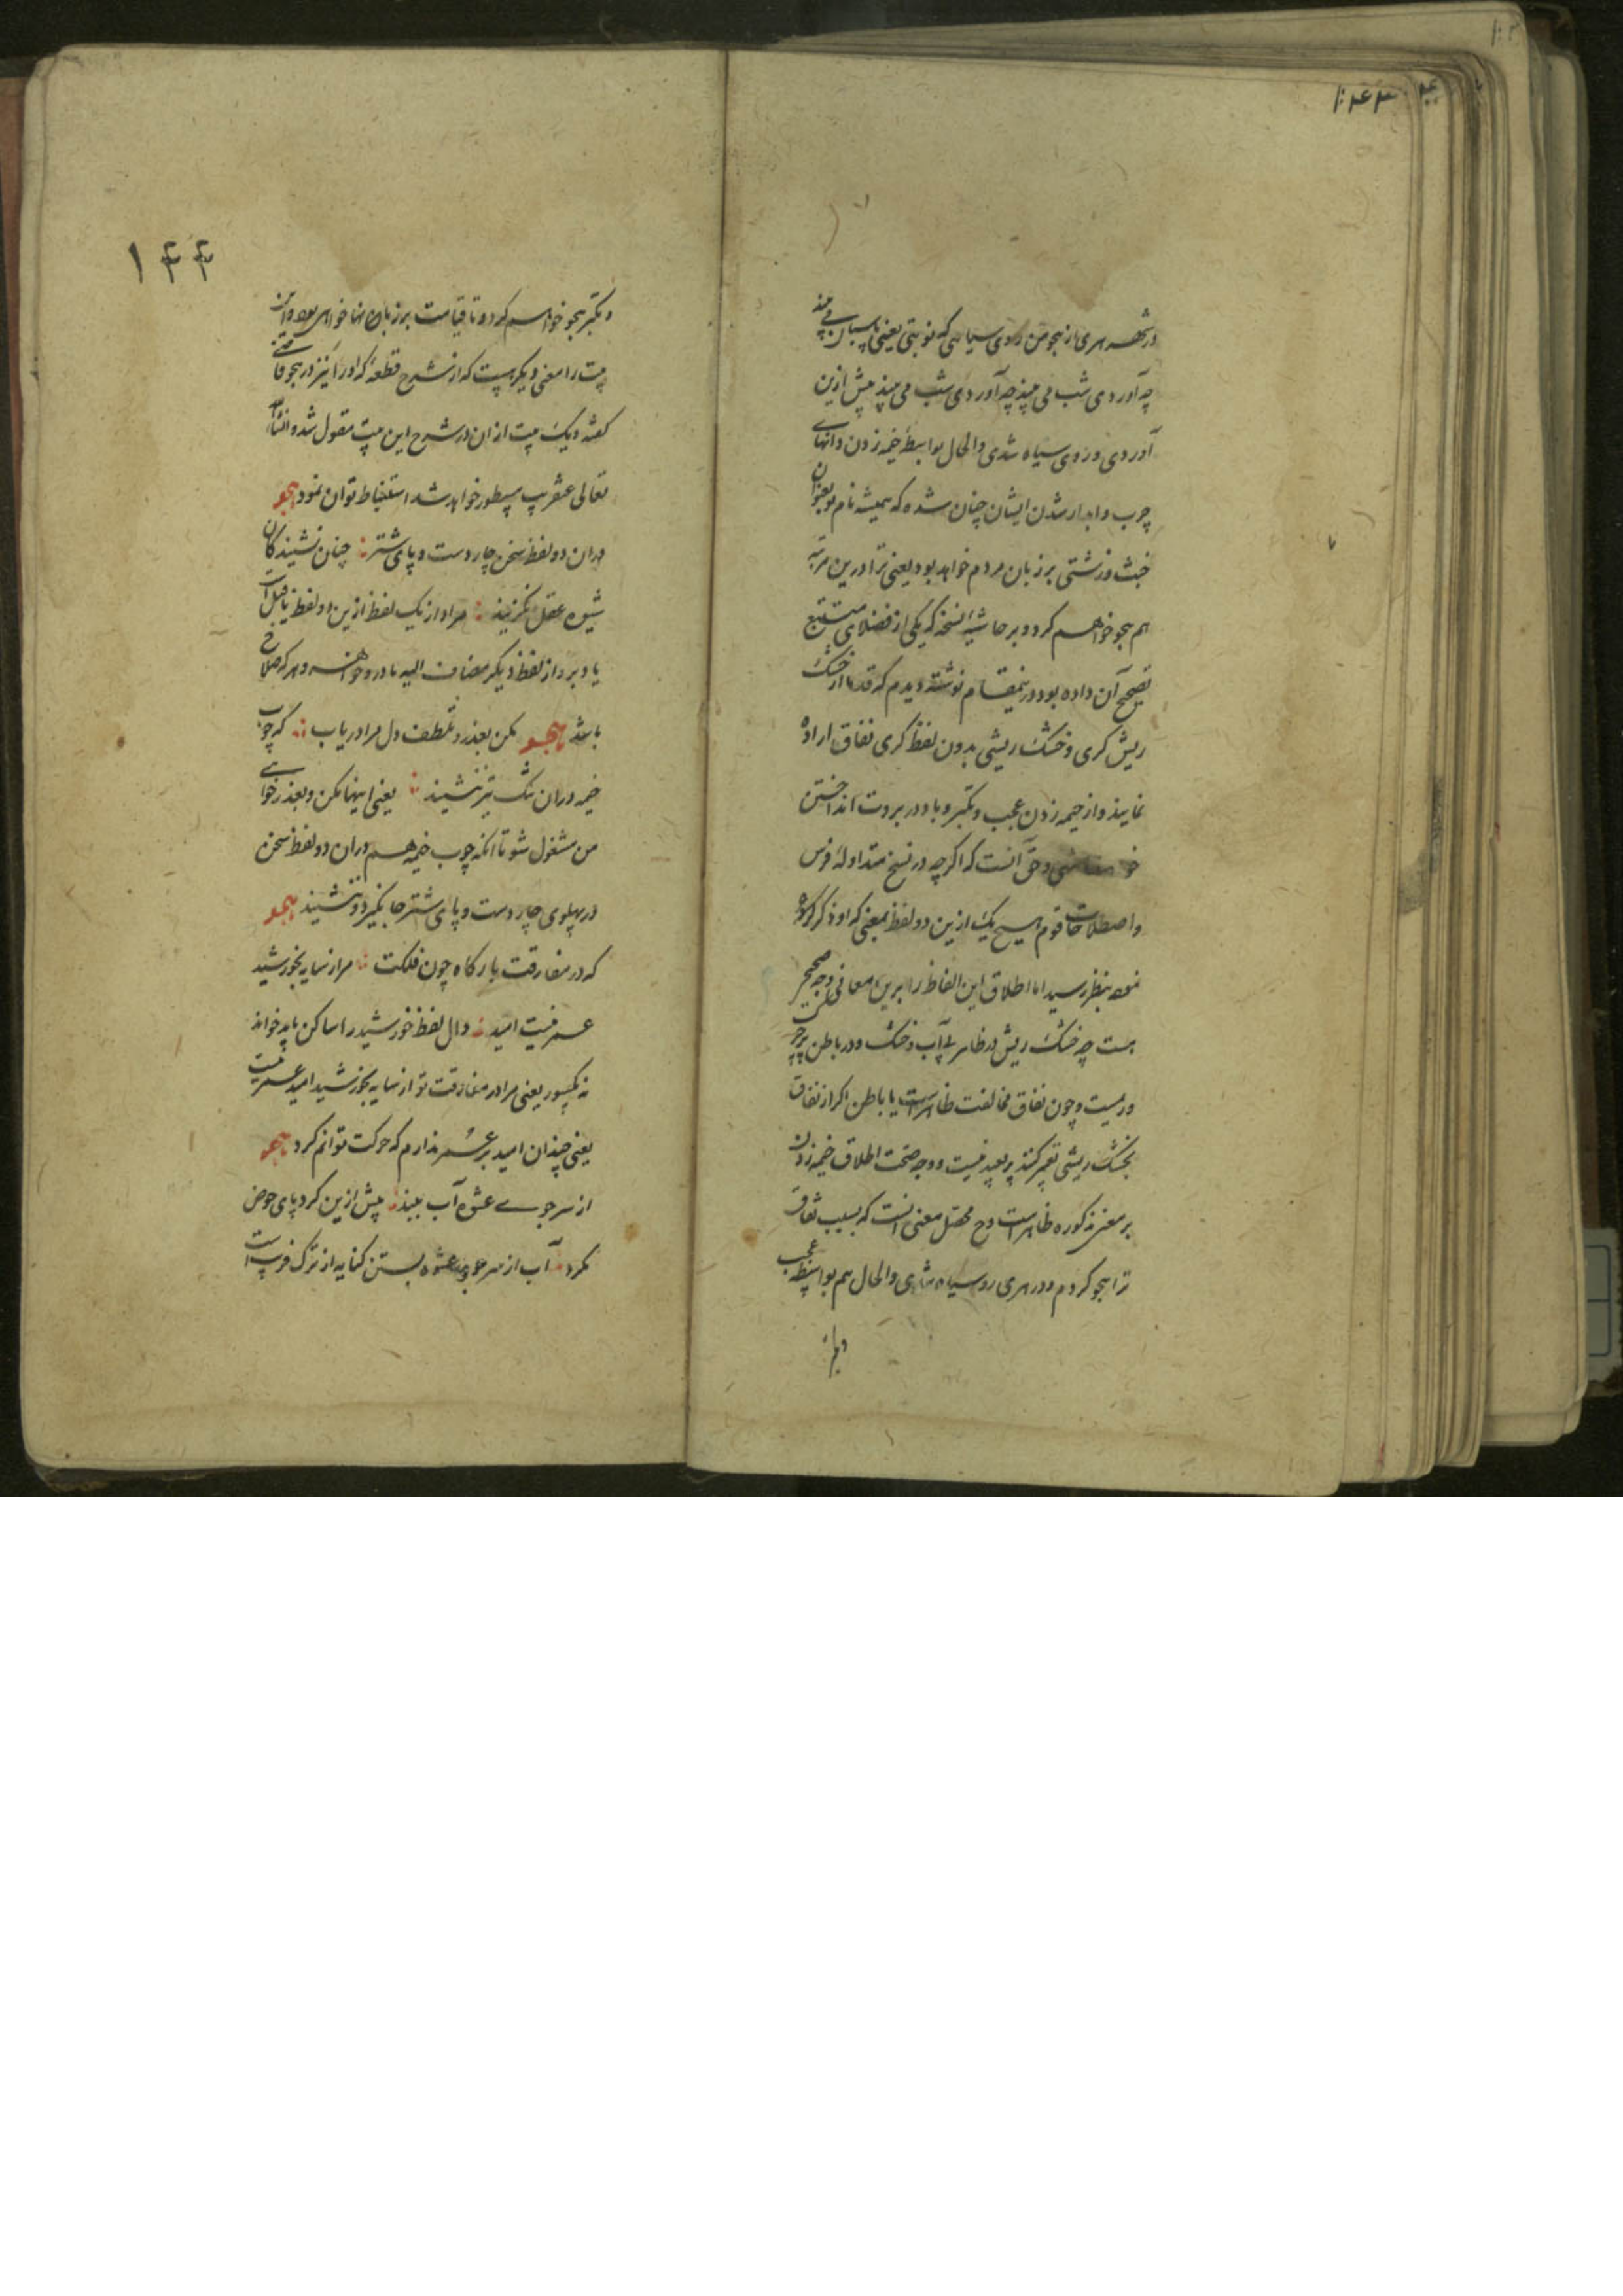 ۱۴۳
در شهر هری از هجو من روی سیاهی که نوبتی یعنی پاسبان می بیند
چه آوردی شب می بیند چه آوردی شب می بیند پیش ازین
آوردی و روی سیاه شدی والحال بواسطهٔ خیمه زدن وانهای
چرب و ایشان چنان شده که همیشه نام تو بعنوان
خبث و زشتی بر زبان مردم خواهد بود یعنی ترا درین مرتبه
هم هجو خواهم کرد و بر حاشیهٔ نسخهٔ که یکی از فضلای متتبع
تصحیح آن داده بود درینمقام نوشته دیدم که قدما از خشک
ریش کری و خشک ریشی بدون لفظ کری نفاق اراده
نمایند و از خیمه زدن عجب و تکبر و باد در بروت انداختن
و حق آنست که اکرچه در نسخ متداولهٔ فرس
و اصطلاحات قوم هیچ یک ازین دو لفظ بمعنی که او ذکر کرده
بنظر رسید اما اطلاق این الفاظ را برین معانی وجه صحیح
هست چه خشک ریش در ظاهر بی آب و خشک و در باطن پر چرک
و ریمست و چون نفاق مخالفت ظاهرست با باطن اکر از نفاق
بخشک ریشی تعبیر کنند پر بعید نیست و وجه صحت اطلاق خیمه زدن
بر معنی مذکوره ظاهر است وح محصل معنی آنست که بسبب نفاق
ترا هجو کردم و در هری رو سیاه شدی والحال هم بواسطه عجب
و تکبر
۱۴۴
و تکبر هجو خواهم کرد و تا قیامت بر زبان خواهی بود و این
بیت را معنی دیکر هست که از شرح قطعهٔ که او را نیز در هجو قاضی
کفته و یک بیت از ان در شرح این بیت منقول شد و انشاء الله
تعالی عنقریب مسطور خواهد شد استنباط توان نمود هجو
در ان دو لفظ سخن چار دست و پای شتر چنان نشیند کان
شیوه عقل نکزیند مراد از یک لفظ ازین دو لفظ یا قبل است
یا دبر و از لفظ دیکر مضاف الیه مادر و خواهر و هر که صلاح
باشد هجو مکن بعذر و تلطف دل مرا دریاب که چوب
خیمه دران تنک تیز ننشیند یعنی اینها مکن و بعذر خواهی
من مشغول شو تا آنکه چوب خیمه هم دران دو لفظ سخن
در پهلوی چار دست و پای شتر جا نکیرد و ننشیند هجو
که در مفارقت بارکاه چون فلکت مرا ز سایه بخورشید
عمر نیست امید دال لفظ خورشید را ساکن باید خواند
نه مکسور یعنی مرا در مفارقت تو از سایه بخورشید امید عمر نیست
یعنی چندان امید بر عمر ندارم که حرکت توانم کرد هجو
از سر جوی عشوه آب ببند پیش ازین کرد پای حوض
مکرد آب از سر جوی عشوه بستن کنایه از ترک فریب است